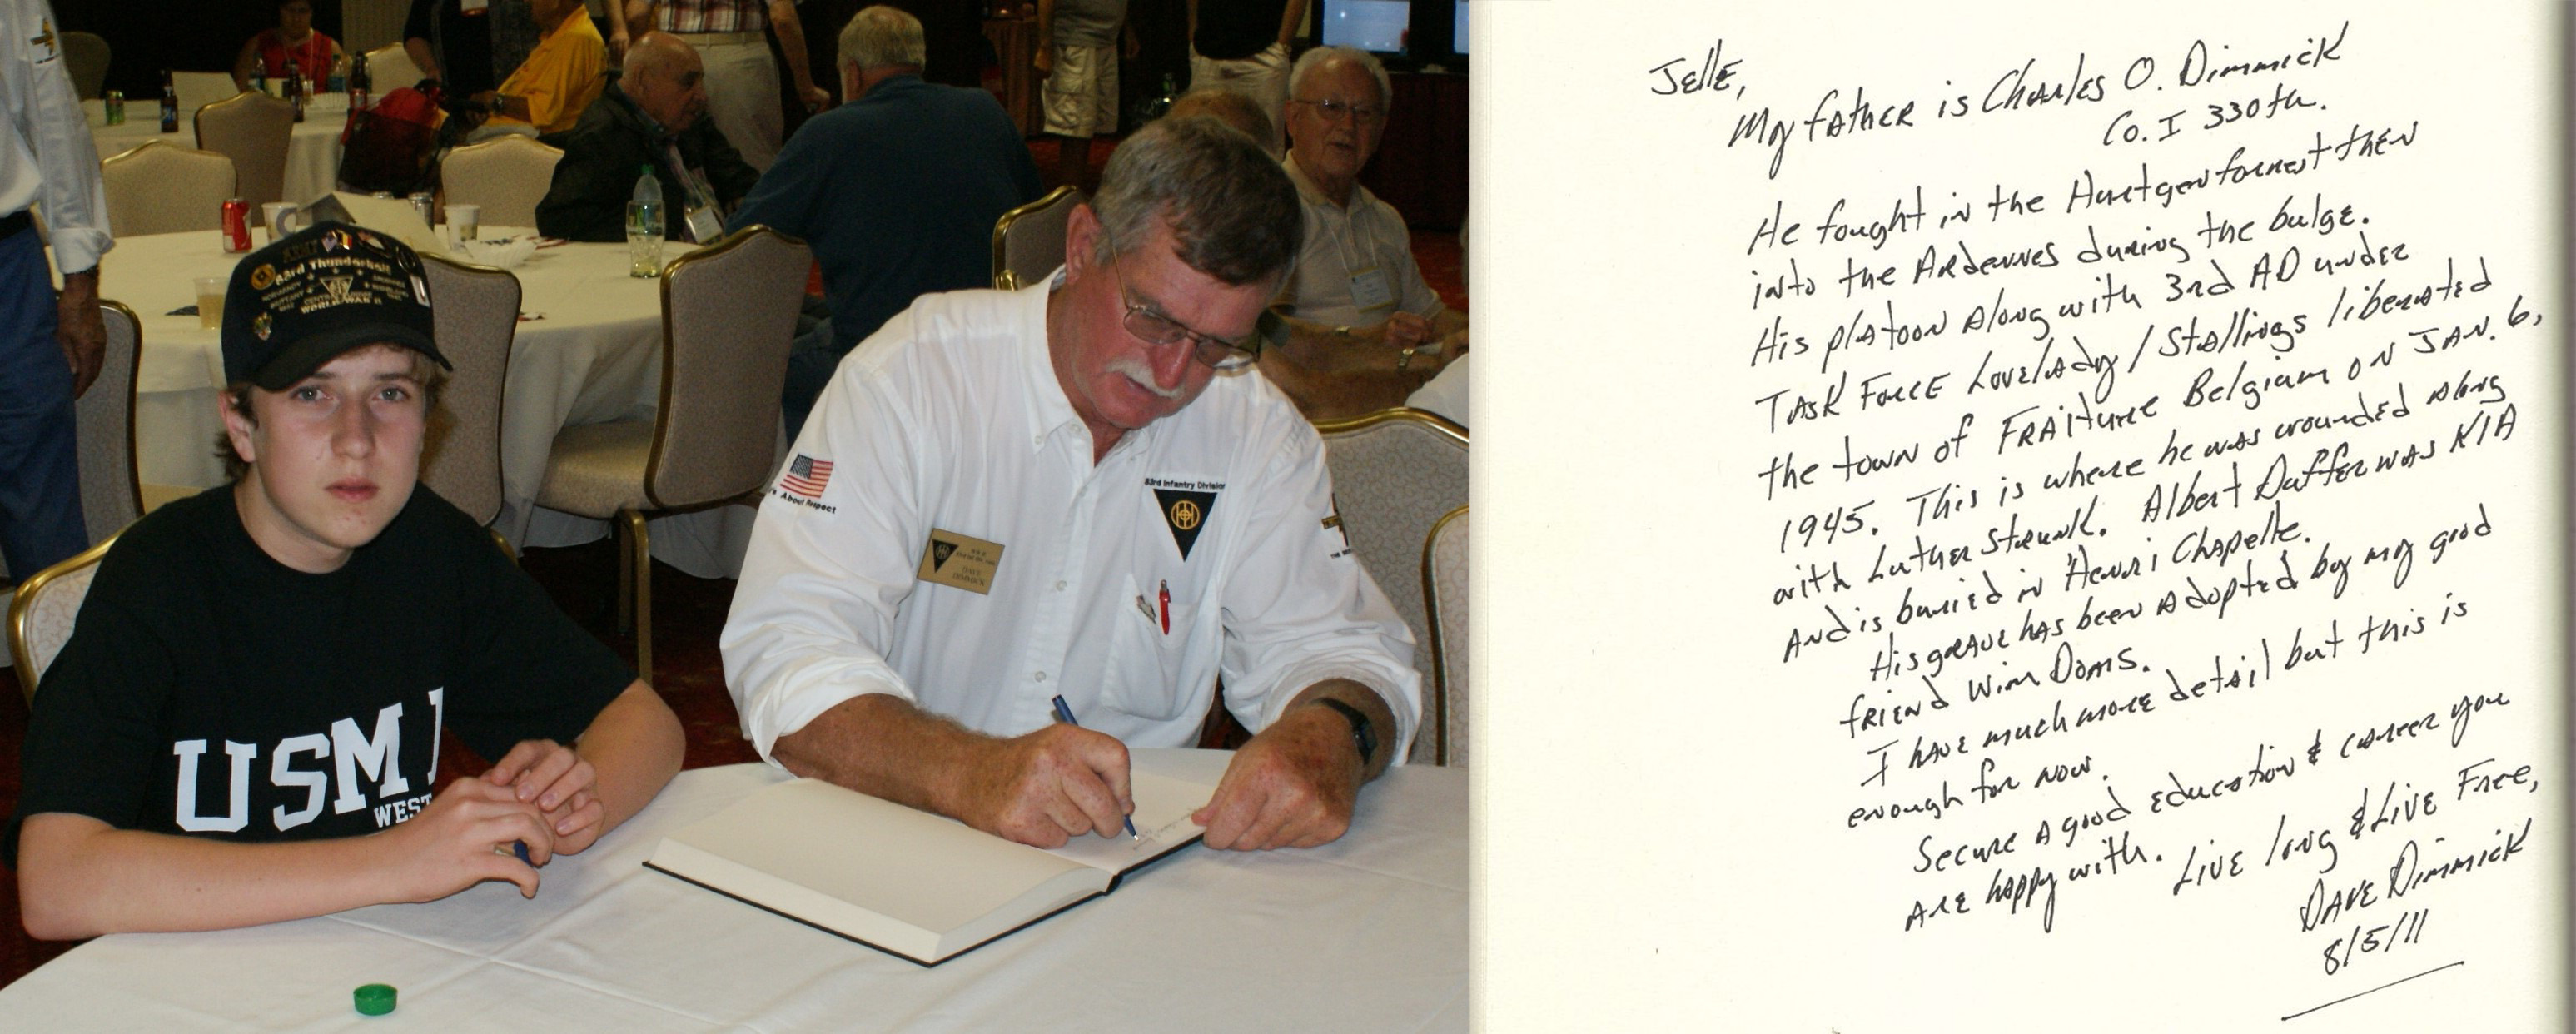 83rd Thunderbolt
NORMANDY
BRITTANY
WORLD WAR II
USM
WEST
About Respect
83rd Infantry Division
DAVE
DIMMICK
Jelle,
My father is Charles O. Dimmick
Co. I 330th.
He fought in the Huetgen forrest then
into the Ardennes during the bulge.
His platoon along with 3rd AD under
Task Force Lovelady / Stallings liberated
the town of Fraiture Belgium on Jan. 6,
1945. This is where he was wounded along
with Luther Strunk. Albert Duffer was KIA
and is buried in Henri Chapelle.
His grave has been adopted by my good
friend Wim Doms.
I have much more detail but this is
enough for now.
Secure a good education & career you
are happy with. Live long & Live Free,
Dave Dimmick
8/5/11